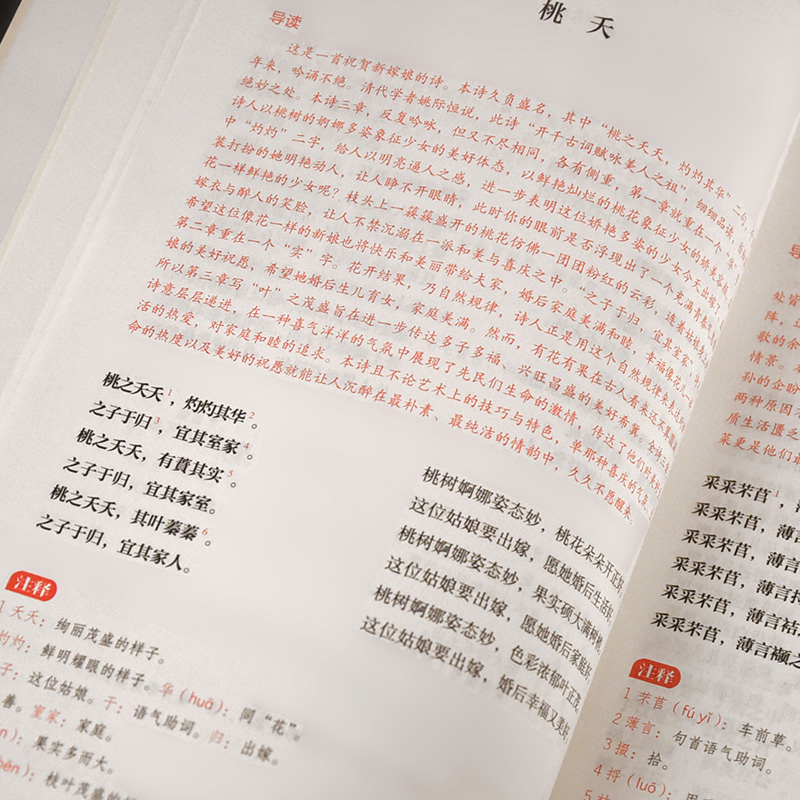 桃夭
导读
这是一首祝贺新嫁娘的诗。本诗久负盛名，其中“桃之夭夭，灼灼其华”二句，
年来，吟诵不绝。清代学者姚际恒说，此诗“开千古词赋咏美人之祖”，细细品味，
绝妙之处。本诗三章，反复吟咏，但又不尽相同，各有侧重，第一章放重在一个“华”
诗人以桃树的婀娜多姿象征少女的美好体态，以鲜艳灿烂的桃花象征少女的娇美容
中“灼灼”二字，给人以明亮逼人之感，进一步表明这位娇艳多姿的少女今天出嫁
装打扮的她明艳动人，让人睁不开眼睛，此时你的眼前是否浮现出了一个充满青春
花一样鲜艳的少女呢？枝头上一簇簇盛开的桃花仿佛一团团粉红的云彩，连着姑娘
嫁衣与醉人的笑脸，让人不禁沉溺在一派和美与喜庆之中。“之子于归，宜其室家”
希望这位像花一样的新娘也将快乐和美丽带给夫家，婚后家庭美满和睦，幸福
第二章重在一个“实”字。花开结果，乃自然规律，诗人正是用这个自然规律来
娘的美好祝愿，希望她婚后生儿育女，家庭美满。然而，有花有果在古人看来还不
所以第三章写“叶”之茂盛旨在进一步传达多子多福、兴旺昌盛的美好希冀。全诗
诗意层层递进，在一种喜气洋洋的气氛中展现了先民们生命的激情，传达了他们对
活的热爱，对家庭和睦的追求。本诗且不论艺术上的技巧与特色，单那种喜庆的气氛
命的热度以及美好的祝愿就能让人沉醉在最朴素、最纯洁的情韵中，久久不愿醒来。
桃之夭夭1，灼灼其华2。
之子于归3，宜其室家4。
桃之夭夭，有蕡其实5。
之子于归，宜其家室。
桃之夭夭，其叶蓁蓁6。
之子于归，宜其家人。
桃树婀娜姿态妙，桃花朵朵开正
这位姑娘要出嫁，愿她婚后生活
桃树婀娜姿态妙，果实硕大满树
这位姑娘要出嫁，愿她婚后家庭
桃树婀娜姿态妙，色彩浓郁叶正茂
这位姑娘要出嫁，婚后幸福又美
注释
1 夭夭：绚丽茂盛的样子。
灼灼：鲜明耀眼的样子。华（huā）：同“花”。
子：这位姑娘。于：语气助词。归：出嫁。
善。室家：家庭。
n）：果实多而大。
hēn）：枝叶茂盛的样
导
处皆
阵，
歌的余
情景。
孙的企盼
两种原因
质生活匮乏
菜更是他们最
采采芣苢1，
采采芣苢，薄
采采芣苢，薄言
采采芣苢，薄言
采采芣苢，薄言袺
采采芣苢，薄言襭之
注释
1 芣苢（fú yǐ）：车前草。
2 薄言：句首语气助词。
3 掇：拾。
4 捋（luō）：
5